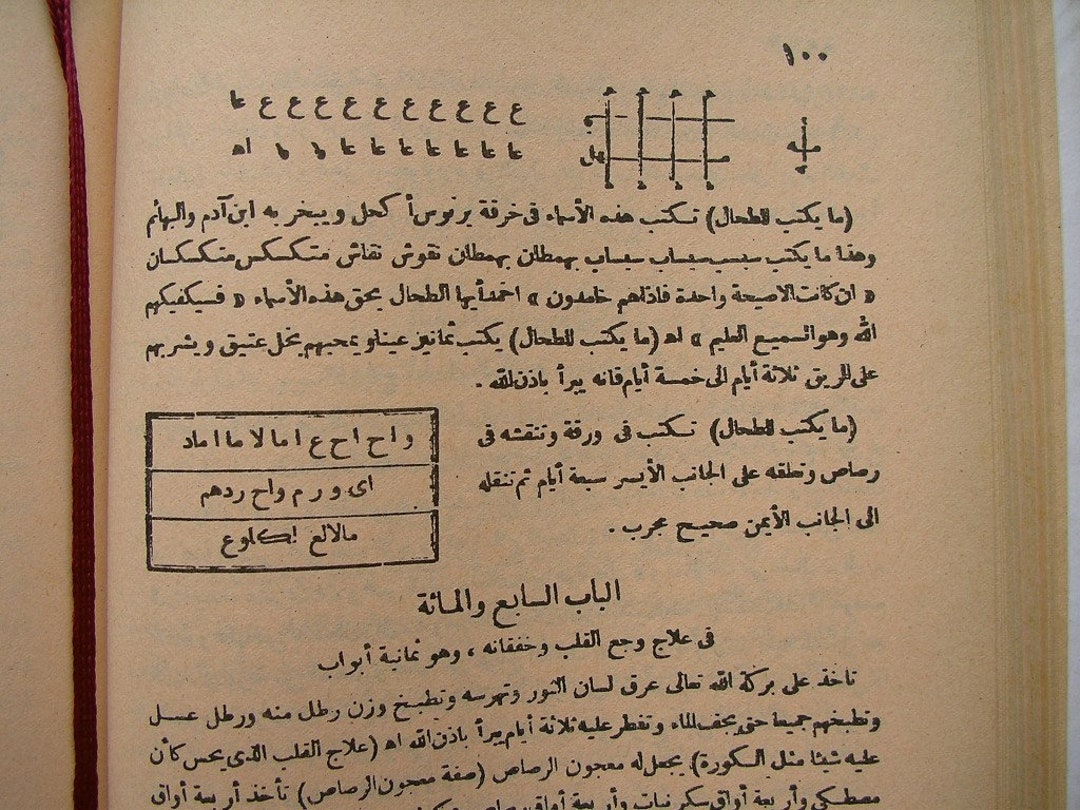 ١٠٠
ع ع ع ع ع ع ع ع ع
(ما يكتب للطحال) تكتب هذه الأسماء فى خرقة برنوس أكحل ويبخر به ابن آدم والبهائم
وهذا ما يكتب سبسب سبساب سيساب بهمطان بهمطان نقوش نقاش متكسكس متكسكسان
« ان كانت الا صيحة واحدة فاذا هم خامدون » اخمد أيها الطحال بحق هذه الأسماء « فسيكفيكهم
الله وهو السميع العليم » اه (ما يكتب للطحال) يكتب ثمانيز عينا ويمحيهم بخل عتيق ويشربهم
على الريق ثلاثة أيام الى خمسة أيام فانه يبرأ باذن الله .
(ما يكتب للطحال) تكتب فى ورقة وتنقشه فى
رصاص وتعلقه على الجانب الأيسر سبعة أيام ثم تنقله
الى الجانب الأيمن صحيح مجرب .
و ا ح ا ح ع ا ما لا ما ا ماد
اى و ر م واح ردهم
مالالع
الباب السابع والمائة
فى علاج وجع القلب وخفقانه ، وهو ثمانية أبواب
تأخذ على بركة الله تعالى عرق لسان الثور وتهرسه وتطبخ وزن رطل منه ورطل عسل
وتطبخهم جميعا حتى يجف الماء وتفطر عليه ثلاثة أيام يبرأ باذن الله اه (علاج القلب الذى يحس كأن
عليه شيئا مثل السكورة) يجعل له معجون الرصاص (صفة معجون الرصاص) تأخذ أربعة أواق
مصطكى وأربعة أواق سكر نبات وأربعة أواق رصاص